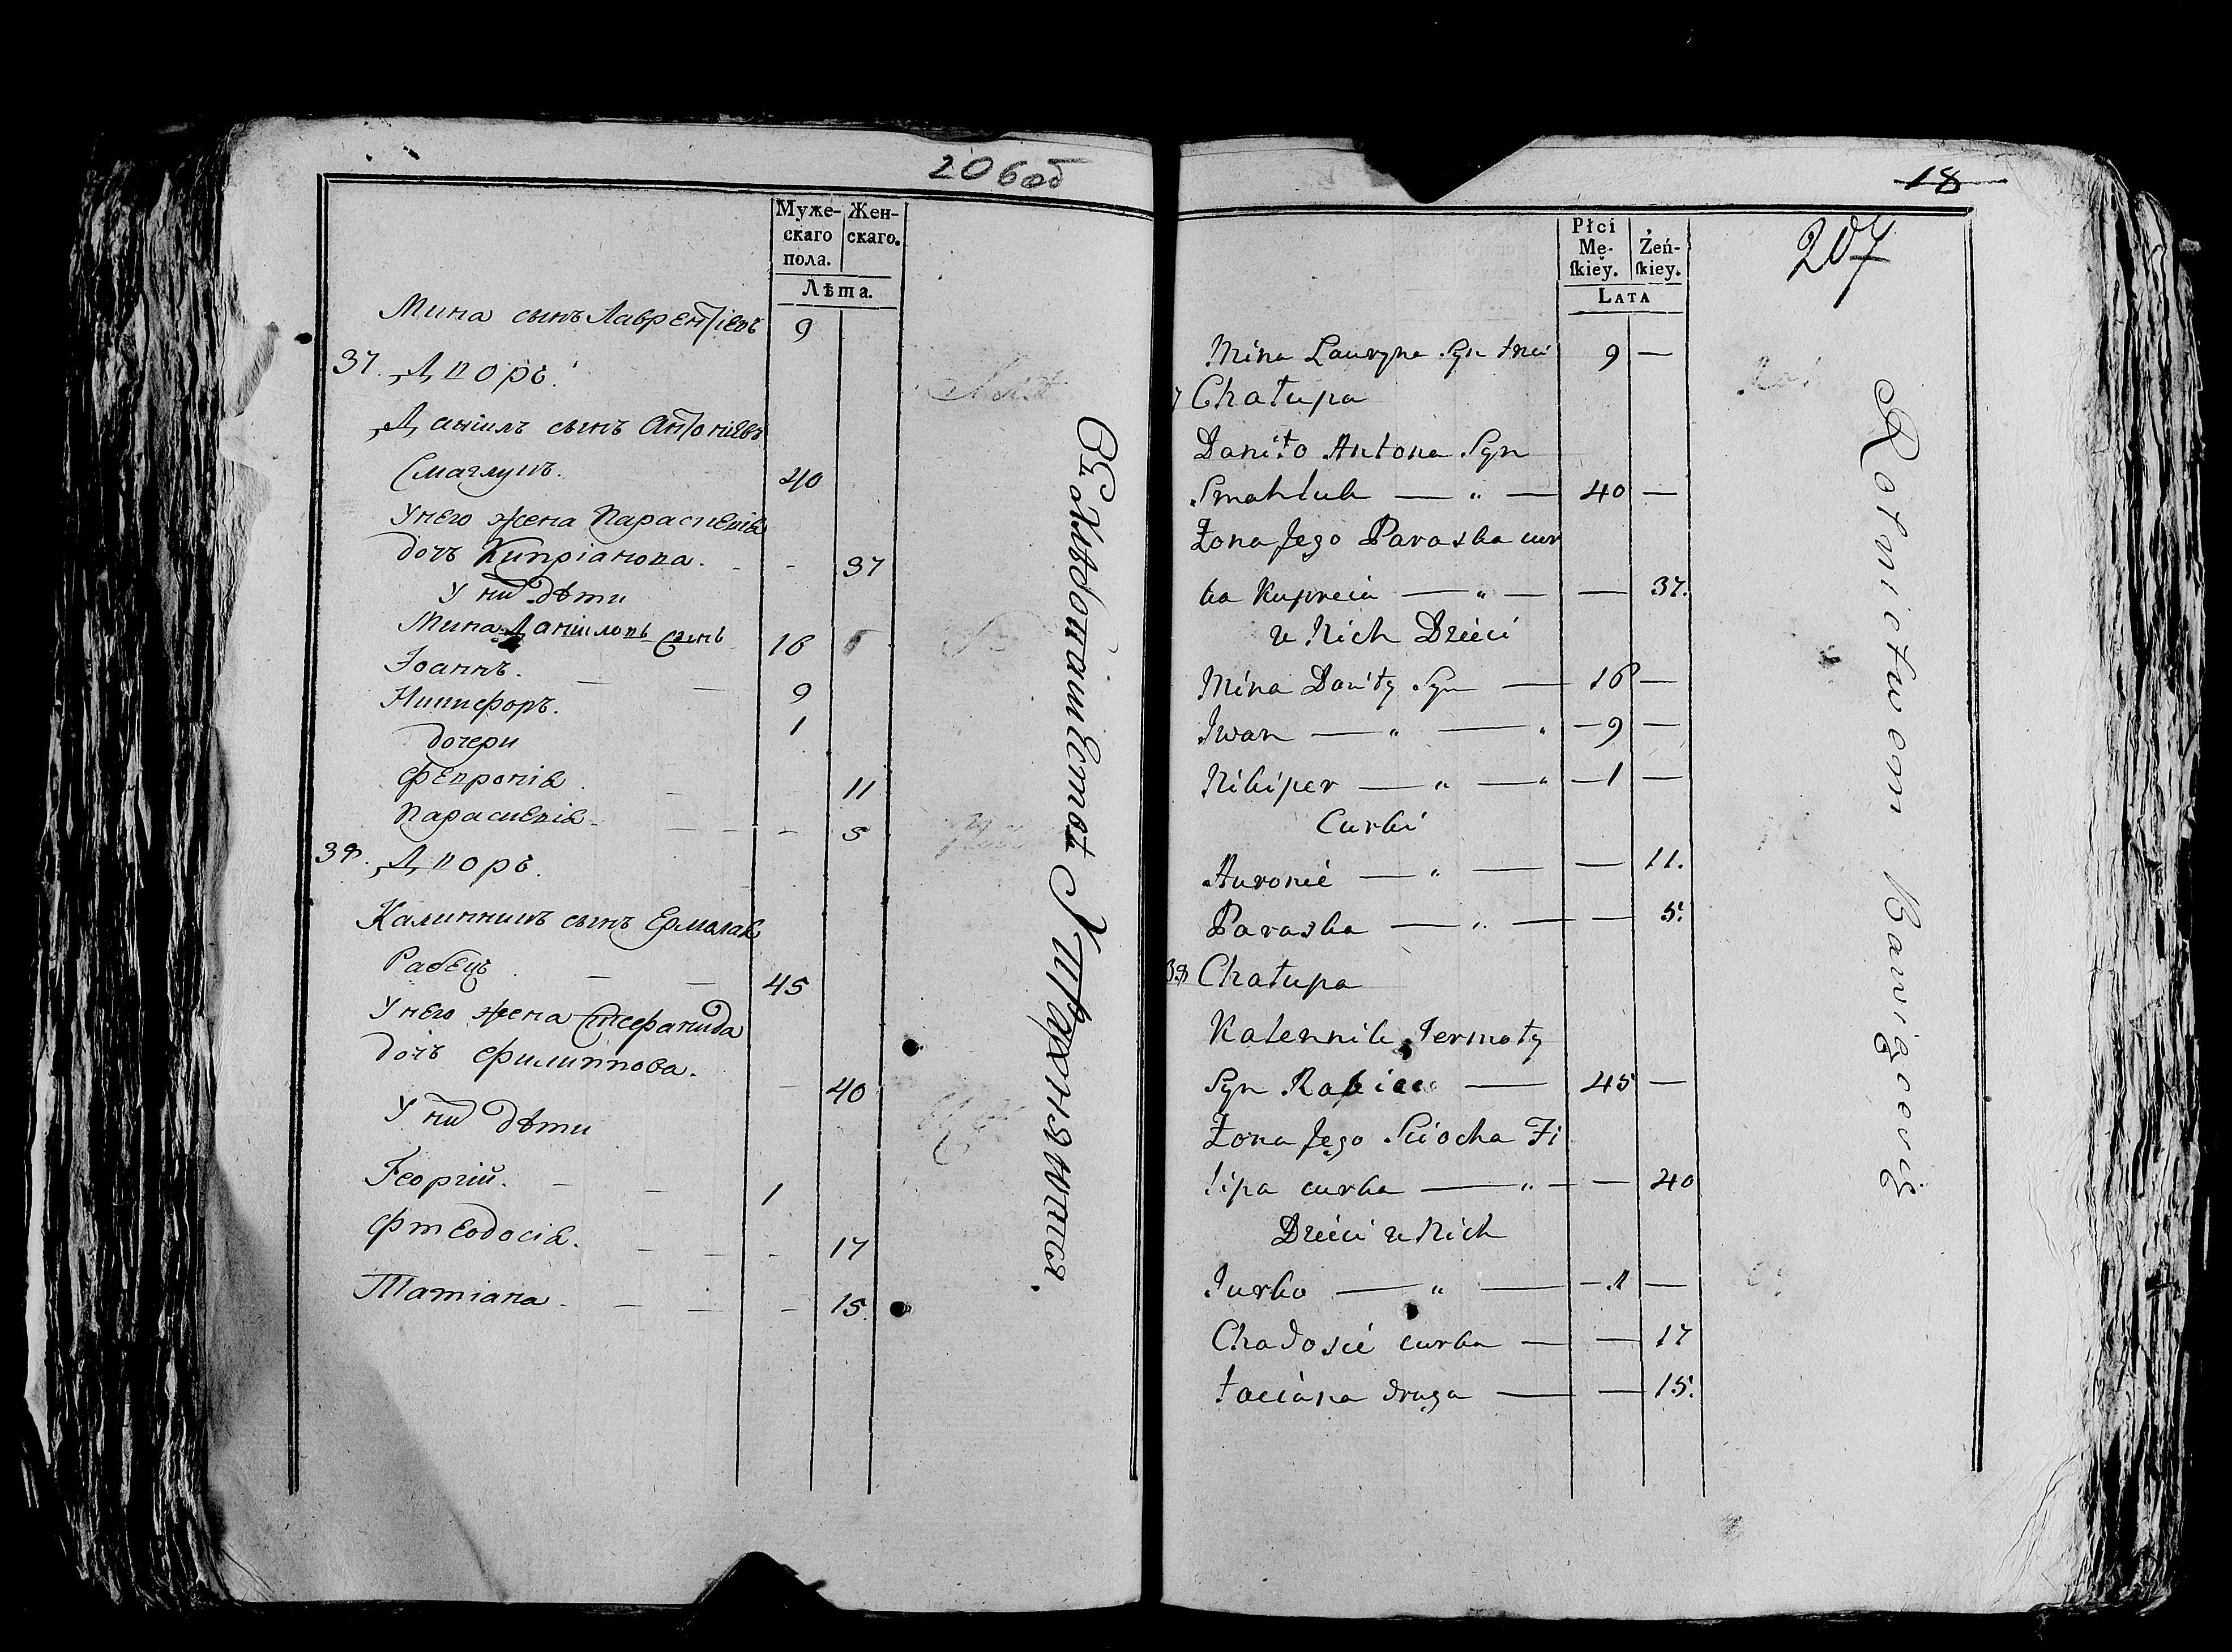 206об
Муже-
скаго
пола.
Жен-
скаго.
Лѣта.
Мина сынъ Лаврентіевъ 9
37. Дворъ.
Даніилъ сынъ Антоніевъ
Смаглукъ. 40
У него жена Параскевіа
дочь Кипріанова. - - 37
У них дѣти
Мина Даніиловъ сынъ 16
Іоаннъ. — — 9
Никифоръ. 1
дочери
Февроніа. — - 11
Параскевіа. — — - 5
38. Дворъ.
Калинникъ сынъ Ермолаа
Рабецъ. — — 45
У него жена Стефанида
дочь Филиппова. - 40
У них дѣти
Георгій. — — 1
Фтеодосіа. — — - 17
Татіана. — — - 15.
Хлѣбопашеством Упражняются.
18
207
Płci
Mę-
skiey.
Żeń-
skiey.
LATA
Mina Lauryna Syn 9 —
7 Chałupa
Daniło Antona Syn
Smahluk — " — 40 —
Żona Jego Paraska cur
ka Kupreia — " — — 37.
u Nich Dzieci
Mina Daniły Syn — 16 —
Iwan — " — " — 9 —
Nikiper — " — " — 1 —
Curki
Auronie — " — — 11.
Paraska — " — — 5.
38 Chałupa
Kalennik Jermoły
Syn Rabiec — 45 —
Żona Jego Sciocha Fi
lipa curka — " — — 40
Dzieci u Nich
Jurko — " — — 1 —
Chadosie curka — — 17
Taciana druga — — 15.
Rolnictwem Bawiącewię